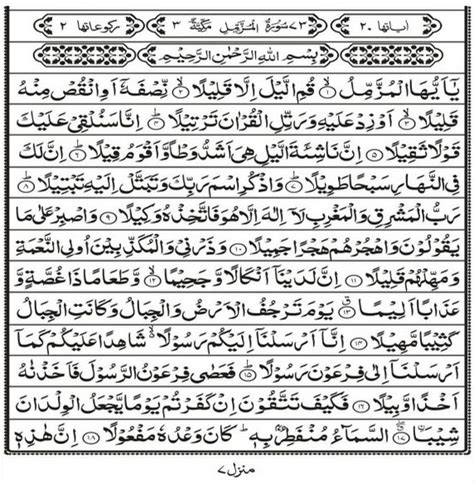 اٰیاتھا ۲۰ ﴿۷۳ سُوْرَةُ الْمُزَّمِّلِ مَكِّيَّةٌ ۳﴾ ركوعاتھا ۲
بِسْمِ اللّٰهِ الرَّحْمٰنِ الرَّحِيْمِ
يٰۤاَيُّهَا الْمُزَّمِّلُ ۱ قُمِ الَّيْلَ اِلَّا قَلِيْلًا ۲ نِّصْفَهٗۤ اَوِ انْقُصْ مِنْهُ
قَلِيْلًا ۳ اَوْ زِدْ عَلَيْهِ وَرَتِّلِ الْقُرْاٰنَ تَرْتِيْلًا ۴ اِنَّا سَنُلْقِيْ عَلَيْكَ
قَوْلًا ثَقِيْلًا ۵ اِنَّ نَاشِئَةَ الَّيْلِ هِيَ اَشَدُّ وَطْاً وَّاَقْوَمُ قِيْلًا ۶ اِنَّ لَكَ
فِي النَّهَارِ سَبْحًا طَوِيْلًا ۷ وَاذْكُرِ اسْمَ رَبِّكَ وَتَبَتَّلْ اِلَيْهِ تَبْتِيْلًا ۸
رَبُّ الْمَشْرِقِ وَالْمَغْرِبِ لَاۤ اِلٰهَ اِلَّا هُوَ فَاتَّخِذْهُ وَكِيْلًا ۹ وَاصْبِرْ عَلٰى مَا
يَقُوْلُوْنَ وَاهْجُرْهُمْ هَجْرًا جَمِيْلًا ۱۰ وَذَرْنِيْ وَالْمُكَذِّبِيْنَ اُولِي النَّعْمَةِ
وَمَهِّلْهُمْ قَلِيْلًا ۱۱ اِنَّ لَدَيْنَاۤ اَنْكَالًا وَّجَحِيْمًا ۱۲ وَّطَعَامًا ذَا غُصَّةٍ وَّ
عَذَابًا اَلِيْمًا ۱۳ يَوْمَ تَرْجُفُ الْاَرْضُ وَالْجِبَالُ وَكَانَتِ الْجِبَالُ
كَثِيْبًا مَّهِيْلًا ۱۴ اِنَّاۤ اَرْسَلْنَاۤ اِلَيْكُمْ رَسُوْلًا شَاهِدًا عَلَيْكُمْ كَمَاۤ
اَرْسَلْنَاۤ اِلٰى فِرْعَوْنَ رَسُوْلًا ۱۵ فَعَصٰى فِرْعَوْنُ الرَّسُوْلَ فَاَخَذْنٰهُ
اَخْذًا وَّبِيْلًا ۱۶ فَكَيْفَ تَتَّقُوْنَ اِنْ كَفَرْتُمْ يَوْمًا يَّجْعَلُ الْوِلْدَانَ
شِيْبَا ۱۷ السَّمَآءُ مُنْفَطِرٌۢ بِهٖ كَانَ وَعْدُهٗ مَفْعُوْلًا ۱۸ اِنَّ هٰذِهٖ
منزل ۷